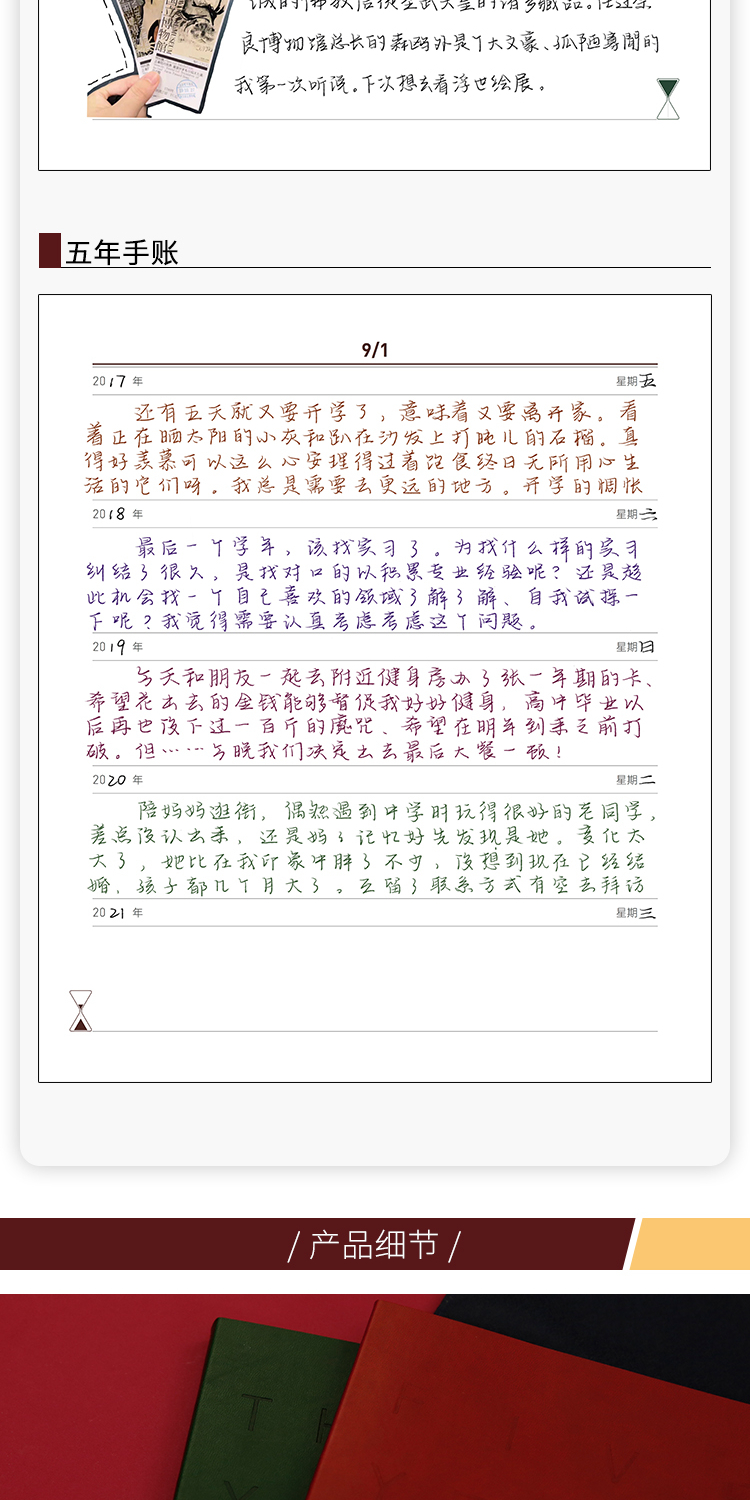 诚的佛教信徒圣武天皇的诸多藏品。任过奈
良博物馆总长的森鸥外是个大文豪、孤陋寡闻的
我第一次听说。下次想去看浮世绘展。
五年手账
9/1
2017年 星期五
还有五天就又要开学了，意味着又要离开家。看
着正在晒太阳的小灰和趴在沙发上打盹儿的石榴。真
得好羡慕可以这么心安理得过着饱食终日无所用心生
活的它们呀。我总是需要去更远的地方。开学的惆怅
2018年 星期六
最后一个学年，该找实习了。为找什么样的实习
纠结了很久，是找对口的以积累专业经验呢？还是趁
此机会找一个自己喜欢的领域了解了解、自我试探一
下呢？我觉得需要认真考虑考虑这个问题。
2019年 星期日
今天和朋友一起去附近健身房办了张一年期的卡、
希望花出去的金钱能够督促我好好健身，高中毕业以
后再也没下过一百斤的魔咒、希望在明年到来之前打
破。但……今晚我们决定出去最后大餐一顿！
2020年 星期二
陪妈妈逛街，偶然遇到中学时玩得很好的老同学，
差点没认出来，还是妈妈记忆好先发现是她。变化太
大了，她比在我印象中胖了不少，没想到现在已经结
婚，孩子都几个月大了。互留了联系方式有空去拜访
2021年 星期三
/ 产品细节 /
T H